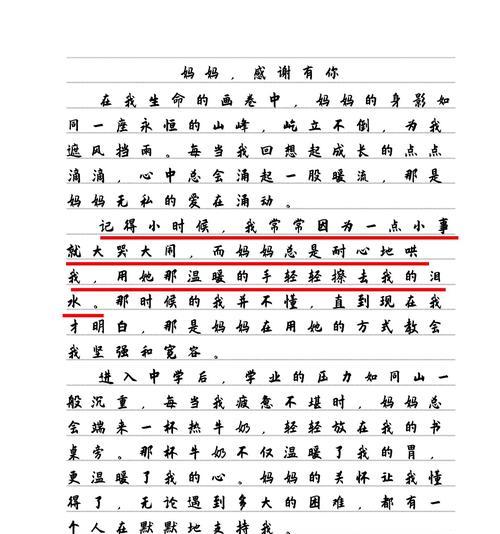 妈妈，感谢有你
在我生命的画卷中，妈妈的身影如
同一座永恒的山峰，屹立不倒，为我
遮风挡雨。每当我回想起成长的点点
滴滴，心中总会涌起一股暖流，那是
妈妈无私的爱在涌动。
记得小时候，我常常因为一点小事
就大哭大闹，而妈妈总是耐心地哄
我，用她那温暖的手轻轻擦去我的泪
水。那时候的我并不懂，直到现在我
才明白，那是妈妈在用她的方式教会
我坚强和宽容。
进入中学后，学业的压力如同山一
般沉重，每当我疲惫不堪时，妈妈总
会端来一杯热牛奶，轻轻放在我的书
桌旁。那杯牛奶不仅温暖了我的胃，
更温暖了我的心。妈妈的关怀让我懂
得了，无论遇到多大的困难，都有一
个人在默默地支持我。